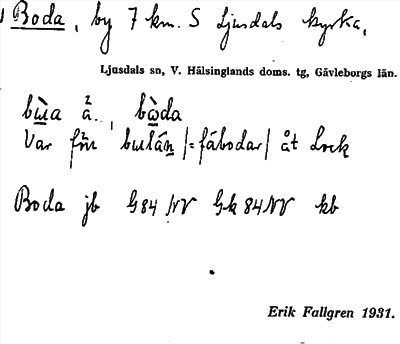 Boda, by 7 km. S Ljusdals kyrka,
Ljusdals sn, V. Hälsinglands doms. tg, Gävleborgs län.
bùa ä., bòda
Var förr bulán /= fäbodar/ åt Lock
Boda jb G84 NV Gk 84 NV kb
Erik Fallgren 1931.